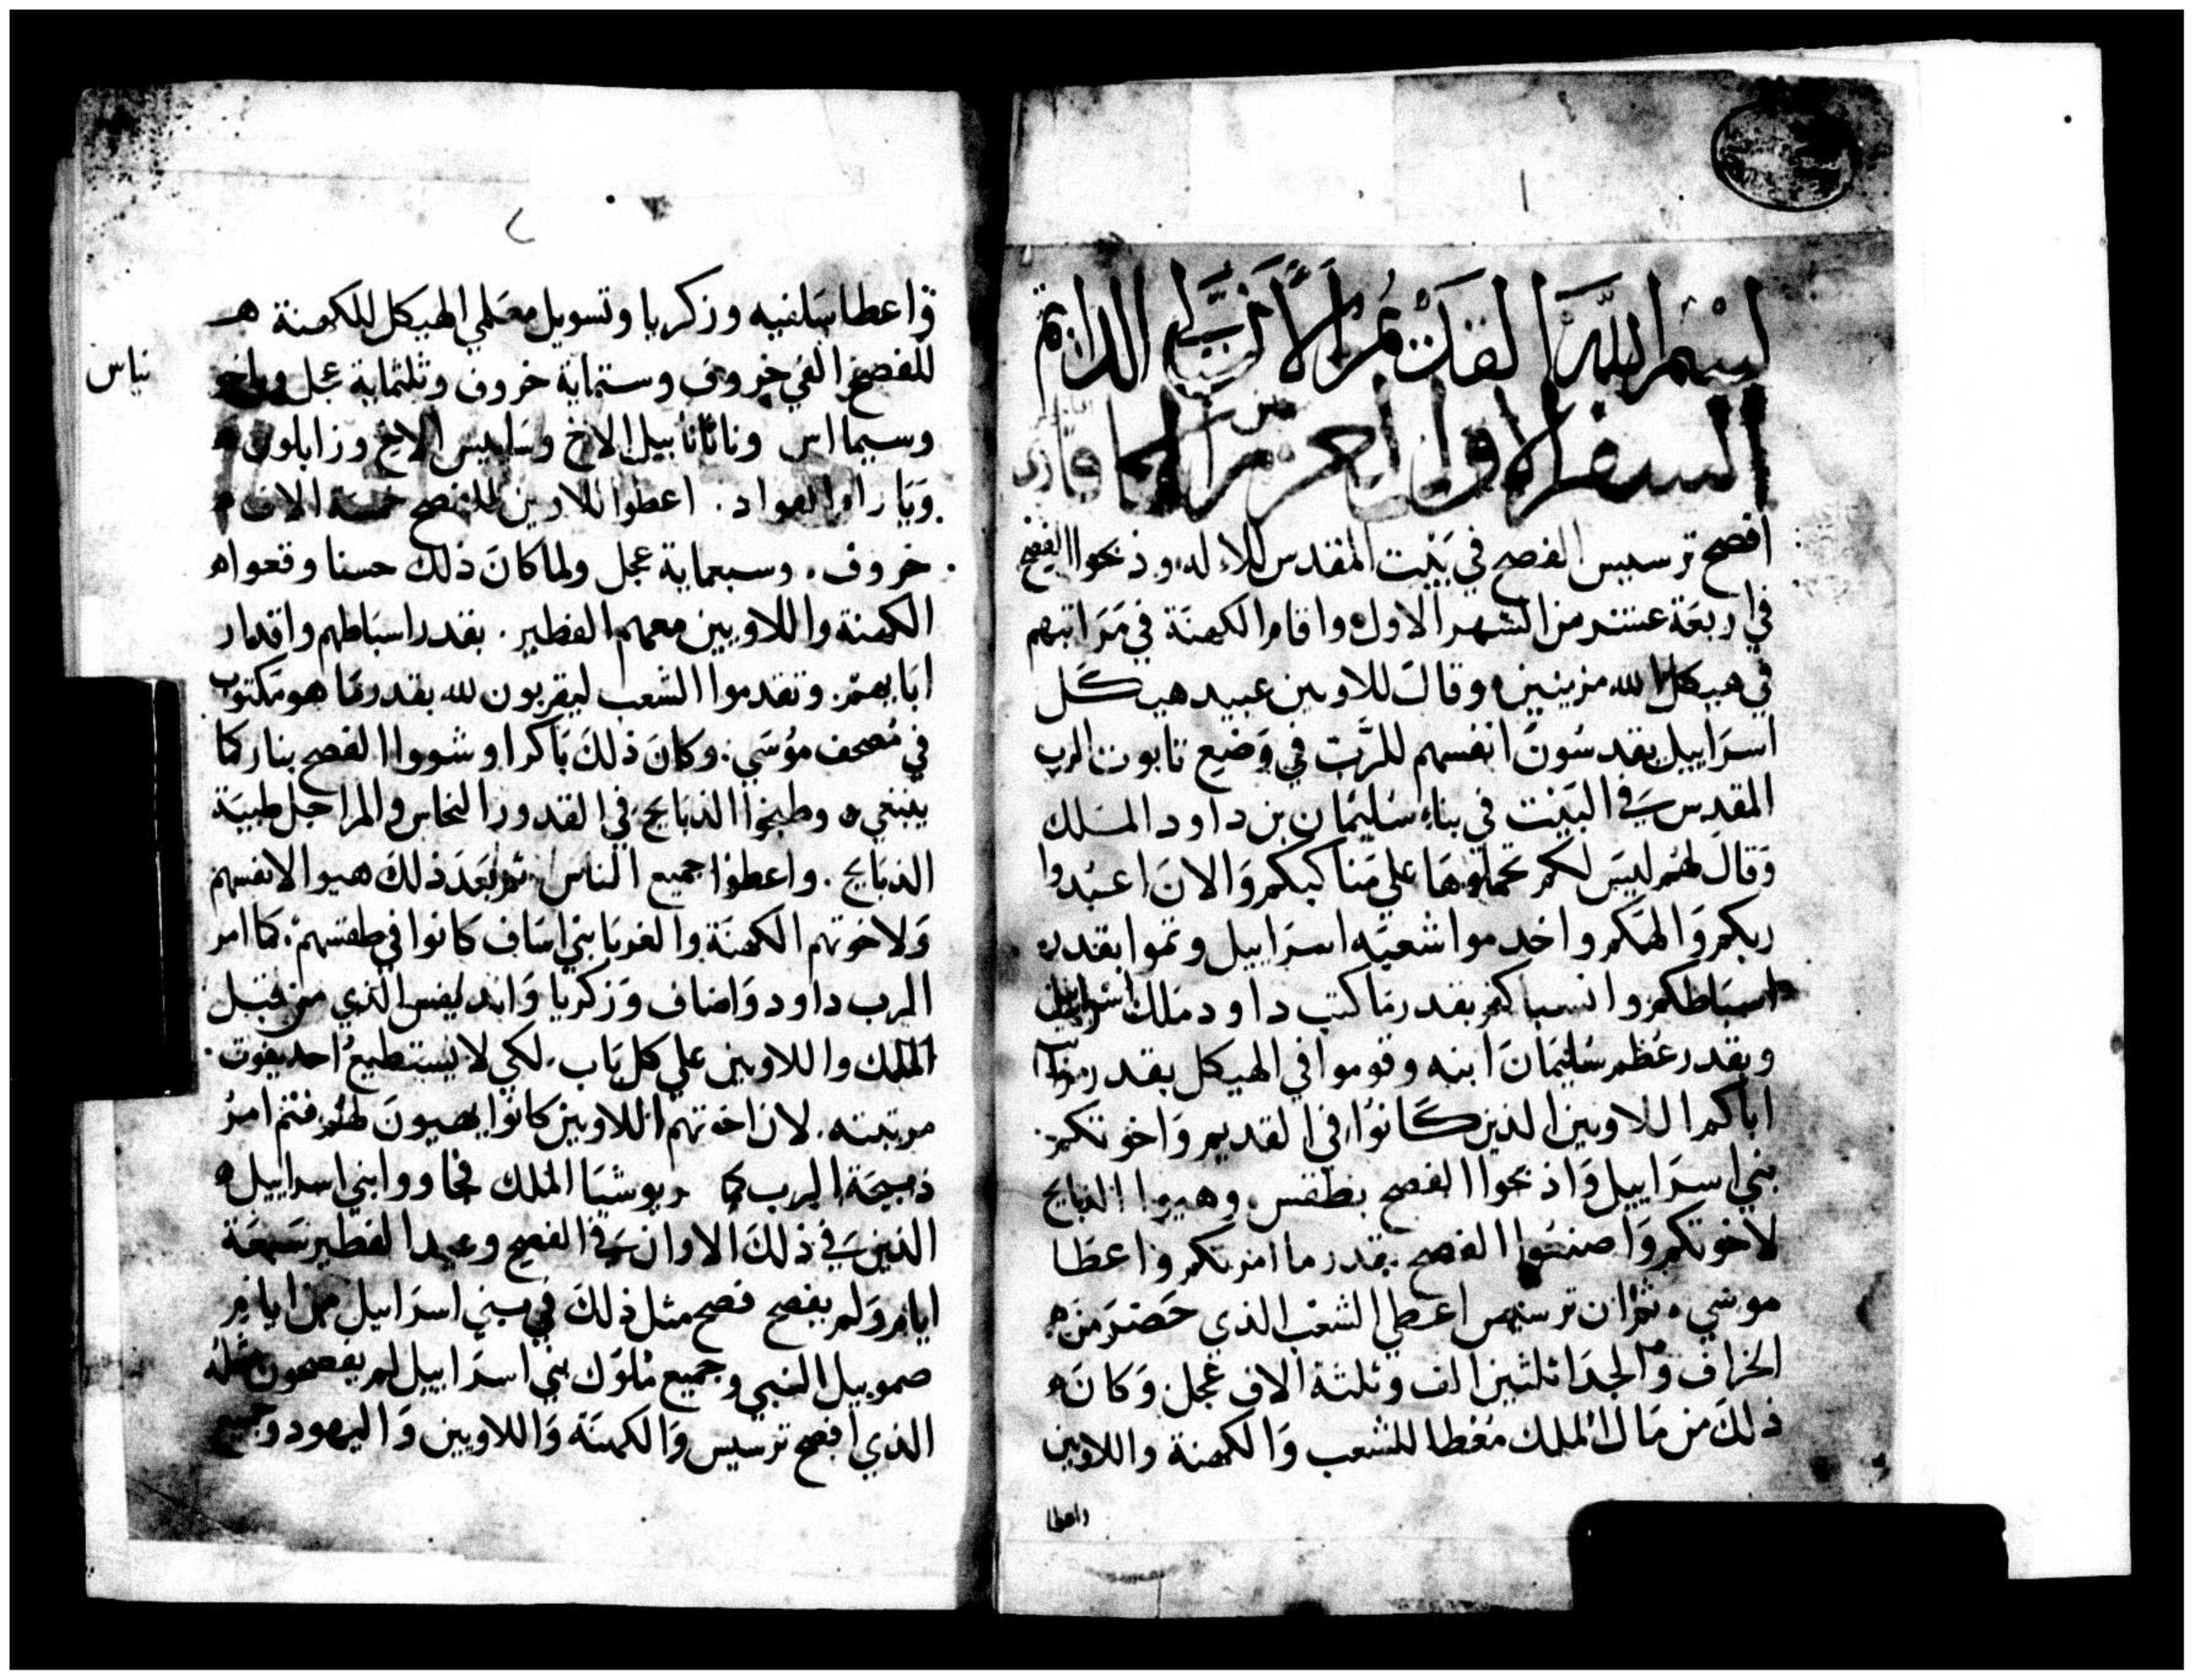 ١
بسم الله القديم الازلي الدايم
السفر الاول لعزرا الكا
افصح ترسيس الفصح في بيت المقدس للاله وذبحوا الفصح
في اربعة عشر من الشهر الاول واقام الكهنة في مراتبهم
في هيكل الله مزينين وقال للاويين عبيد هيكل
اسراييل يقدسون انفسهم للرب في وضع تابوت الرب
المقدس في البيت في بناء سليمان بن داود الملك
وقال لهم ليس لكم تحملوها علي مناكبكم والان اعبدوا
ربكم والهكم واخدموا شعبه اسراييل وتموا بقدر
اسباطكم وانسباكم بقدر ما كتب داود ملك اسراييل
وبقدر عظم سليمان ابنه وقوموا في الهيكل بقدر
اباكم اللاويين الذين كانوا في القديم واخوتكم
بني اسراييل واذبحوا الفصح بطقس وهيوا الذبايح
لاخوتكم واصنعوا الفصح بقدر ما امرتكم واعطا
موسي ثم ان ترسيس اعطي الشعب الذي حضر من
الخراف والجدا ثلثين الف وثلثة الاف عجل وكان
ذلك من مال الملك معطا للشعب والكهنة واللاويين
واعطا
٢
واعطا سلفيه وزكريا وتسويل معلمي الهيكل للكهنة
للفصح الفي خروف وستماية خروف وثلثماية عجل
نياس
وسيما اس وناثانابيل الاخ وسابيس الاخ وزابلون
ويا القواد اعطوا للاويين للفصح خمسة الاف
خروف وسبعماية عجل ولما كان ذلك حسنا وقعوا
الكهنة واللاويين معهم الفطير بقدر اسباطهم واقدار
ابايهم وتقدموا الشعب ليقربون لله بقدر ما هو مكتوب
في مصحف موسي وكان ذلك باكرا وشووا الفصح بنار كما
ينبغي وطبخوا الذبايح في القدور النحاس والمراجل طيبة
الذبايح واعطوا جميع الناس ثم بعد ذلك هيوا لانفسهم
ولاخوتهم الكهنة والغربا بني اساف كانوا في طقسهم كما امر
الرب داود واضاف وزكريا الذي من قبل
الملك واللاويين علي كل باب لكي لا يستطيع احد يفوت
مرتبته لان اخوتهم اللاويين كانوا يهيون لهم فتم امر
ذبيحة الرب كما يوشيا الملك
الذين في ذلك الاوان في الفصح وعيد الفطير سبعة
ايام ولم يفصح فصح مثل ذلك في بني اسراييل من ايام
صموييل النبي وجميع ملوك بني اسراييل لم يفصحون مثله
الذي افصح ترسيس والكهنة واللاويين واليهود وجميع